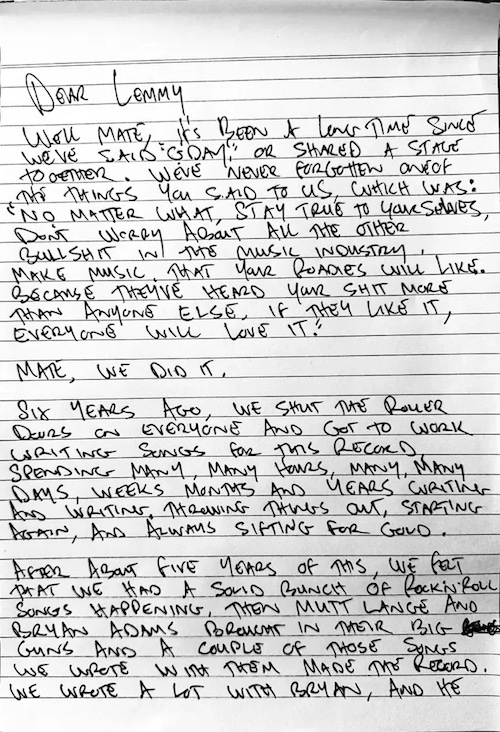 DEAR LEMMY
WELL MATE, IT'S BEEN A LONG TIME SINCE
WE'VE SAID "G'DAY!" OR SHARED A STAGE
TOGETHER. WE'VE NEVER FORGOTTEN ONE OF
THE THINGS YOU SAID TO US, WHICH WAS:
"NO MATTER WHAT, STAY TRUE TO YOURSELVES,
DON'T WORRY ABOUT ALL THE OTHER
BULLSHIT IN THE MUSIC INDUSTRY.
MAKE MUSIC, THAT YOUR ROADIES WILL LIKE.
BECAUSE THEY'VE HEARD YOUR SHIT MORE
THAN ANYONE ELSE, IF THEY LIKE IT,
EVERYONE WILL LOVE IT."
MATE, WE DID IT.
SIX YEARS AGO, WE SHUT THE ROLLER
DOORS ON EVERYONE AND GOT TO WORK
WRITING SONGS FOR THIS RECORD,
SPENDING MANY, MANY HOURS, MANY, MANY
DAYS, WEEKS MONTHS AND YEARS WRITING
AND WRITING, THROWING THINGS OUT, STARTING
AGAIN, AND ALWAYS SIFTING FOR GOLD.
AFTER ABOUT FIVE YEARS OF THIS, WE FELT
THAT WE HAD A SOLID BUNCH OF ROCK'N'ROLL
SONGS HAPPENING, THEN MUTT LANGE AND
BRYAN ADAMS BROUGHT IN THEIR BIG
GUNS AND A COUPLE OF THOSE SONGS
WE WROTE WITH THEM MADE THE RECORD.
WE WROTE A LOT WITH BRYAN, AND HE